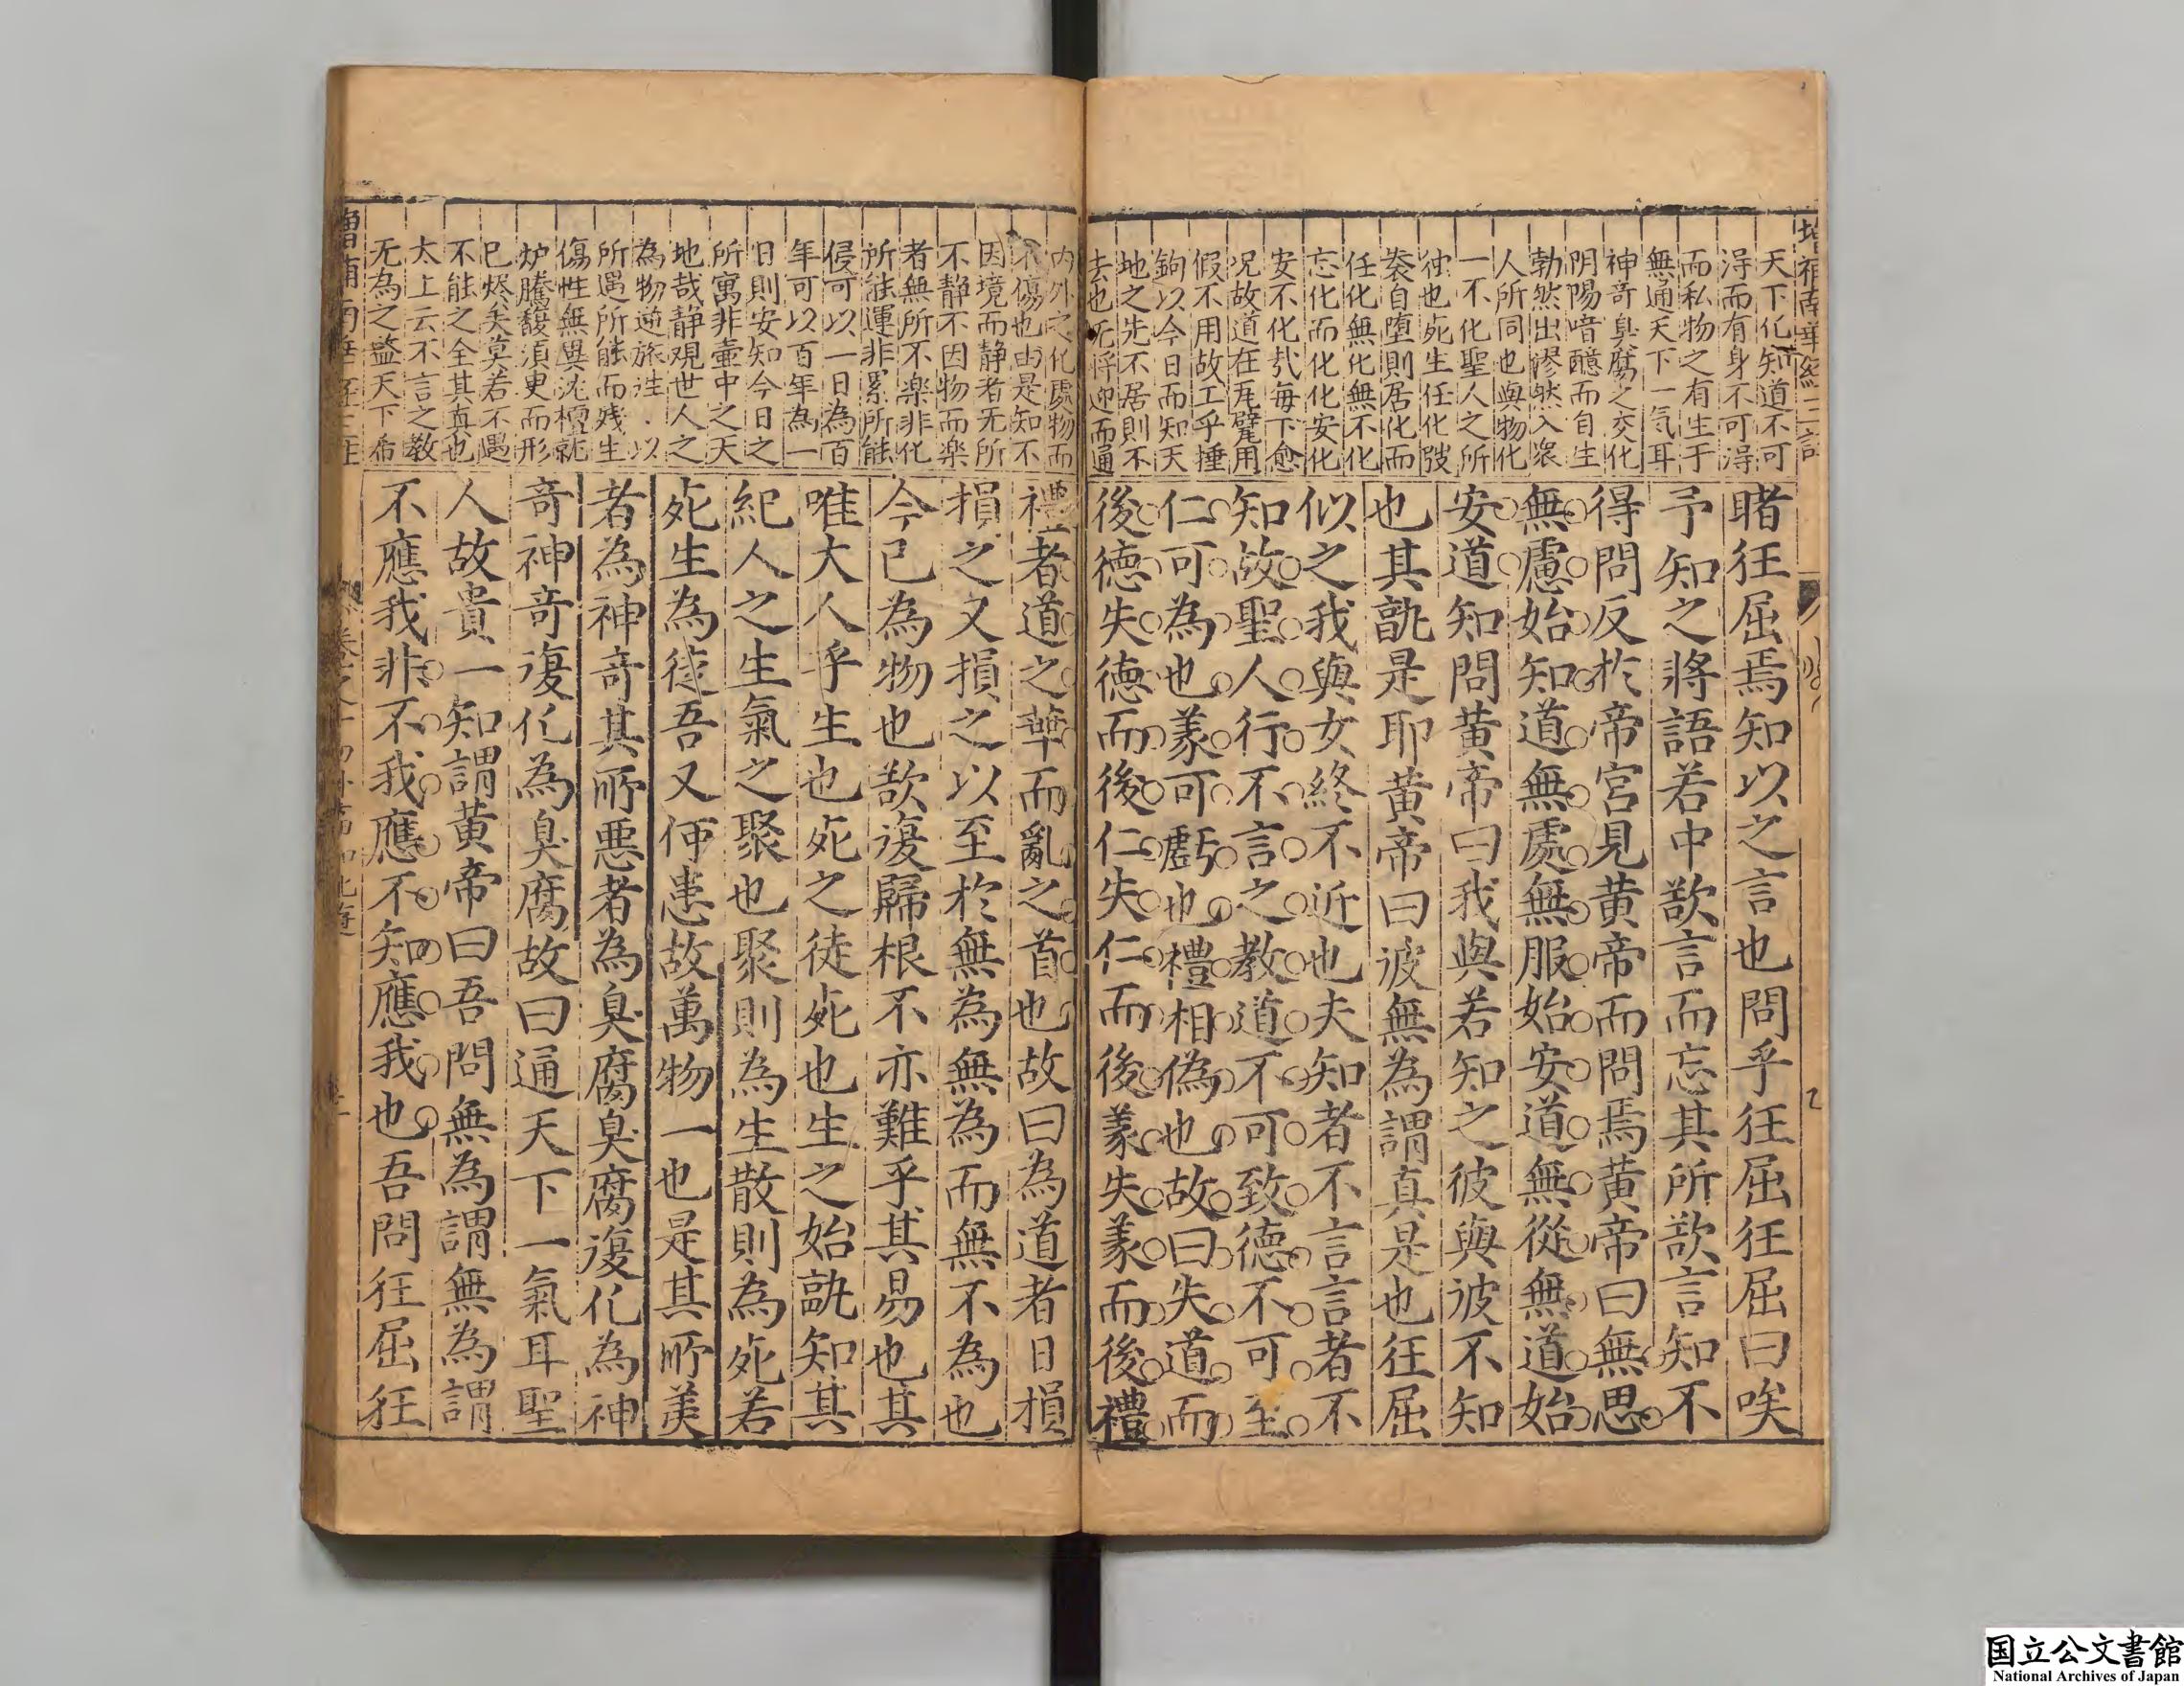 天下化知道不可
得而有身不可得
而私物之有生于
無通天下一气耳
神竒臭腐之交化
阴陽喑醷而自生
勃然出漻然入衆
人所同也與物化
一不化聖人之所
独也死生任化弢
袠自堕則居化而
任化無化無不化
忘化而化化安化
安不化㢤毎下愈
况故道在瓦甓用
假不用故工乎捶
鉤以今日而知天
地之先不居則不
去也无将迎而通
睹狂屈焉知以之言也問乎狂屈狂屈曰唉
予知之將語若中欲言而忘其所欲言知不
得問反於帝宮見黄帝而問焉黄帝曰無思
無慮始知道無處無服始安道無從無道始
安道知問黄帝曰我與若知之彼與彼不知
也其孰是耶黄帝曰彼無為謂真是也狂屈
似之我與女終不近也夫知者不言言者不
知故聖人行不言之教道不可致德不可至
仁可為也義可虧也禮相偽也故曰失道而
後德失德而後仁失仁而後義失義而後禮
内外之化處物而
不傷也由是知不
因境而静者无所
不静不因物而楽
者無所不楽非化
所能運非累所能
侵可以一日為百
年可以百年為一
日則安知今日之
所寓非壷中之天
地哉静观世人之
為物逆旅往以
所遇所能而残生
傷性無異沈檀就
炉騰馥須更而形
已烬矣莫若不遇
不能之全其真也
太上云不言之教
无為之益天下希
禮者道之華而亂之首也故曰為道者日損
損之又損之以至於無為無為而無不為也
今已為物也欲復歸根不亦難乎其易也其
唯大人乎生也死之徒死也生之始孰知其
紀人之生氣之聚也聚則為生散則為死若
死生為徒吾又何患故萬物一也是其所美
者為神奇其所惡者為臭腐臭腐復化為神
竒神竒復化為臭腐故曰通天下一氣耳聖
人故貴一知謂黄帝曰吾問無為謂無為謂
不應我非不我應不知應我也吾問狂屈狂
国立公文書館
National Archives of Japan